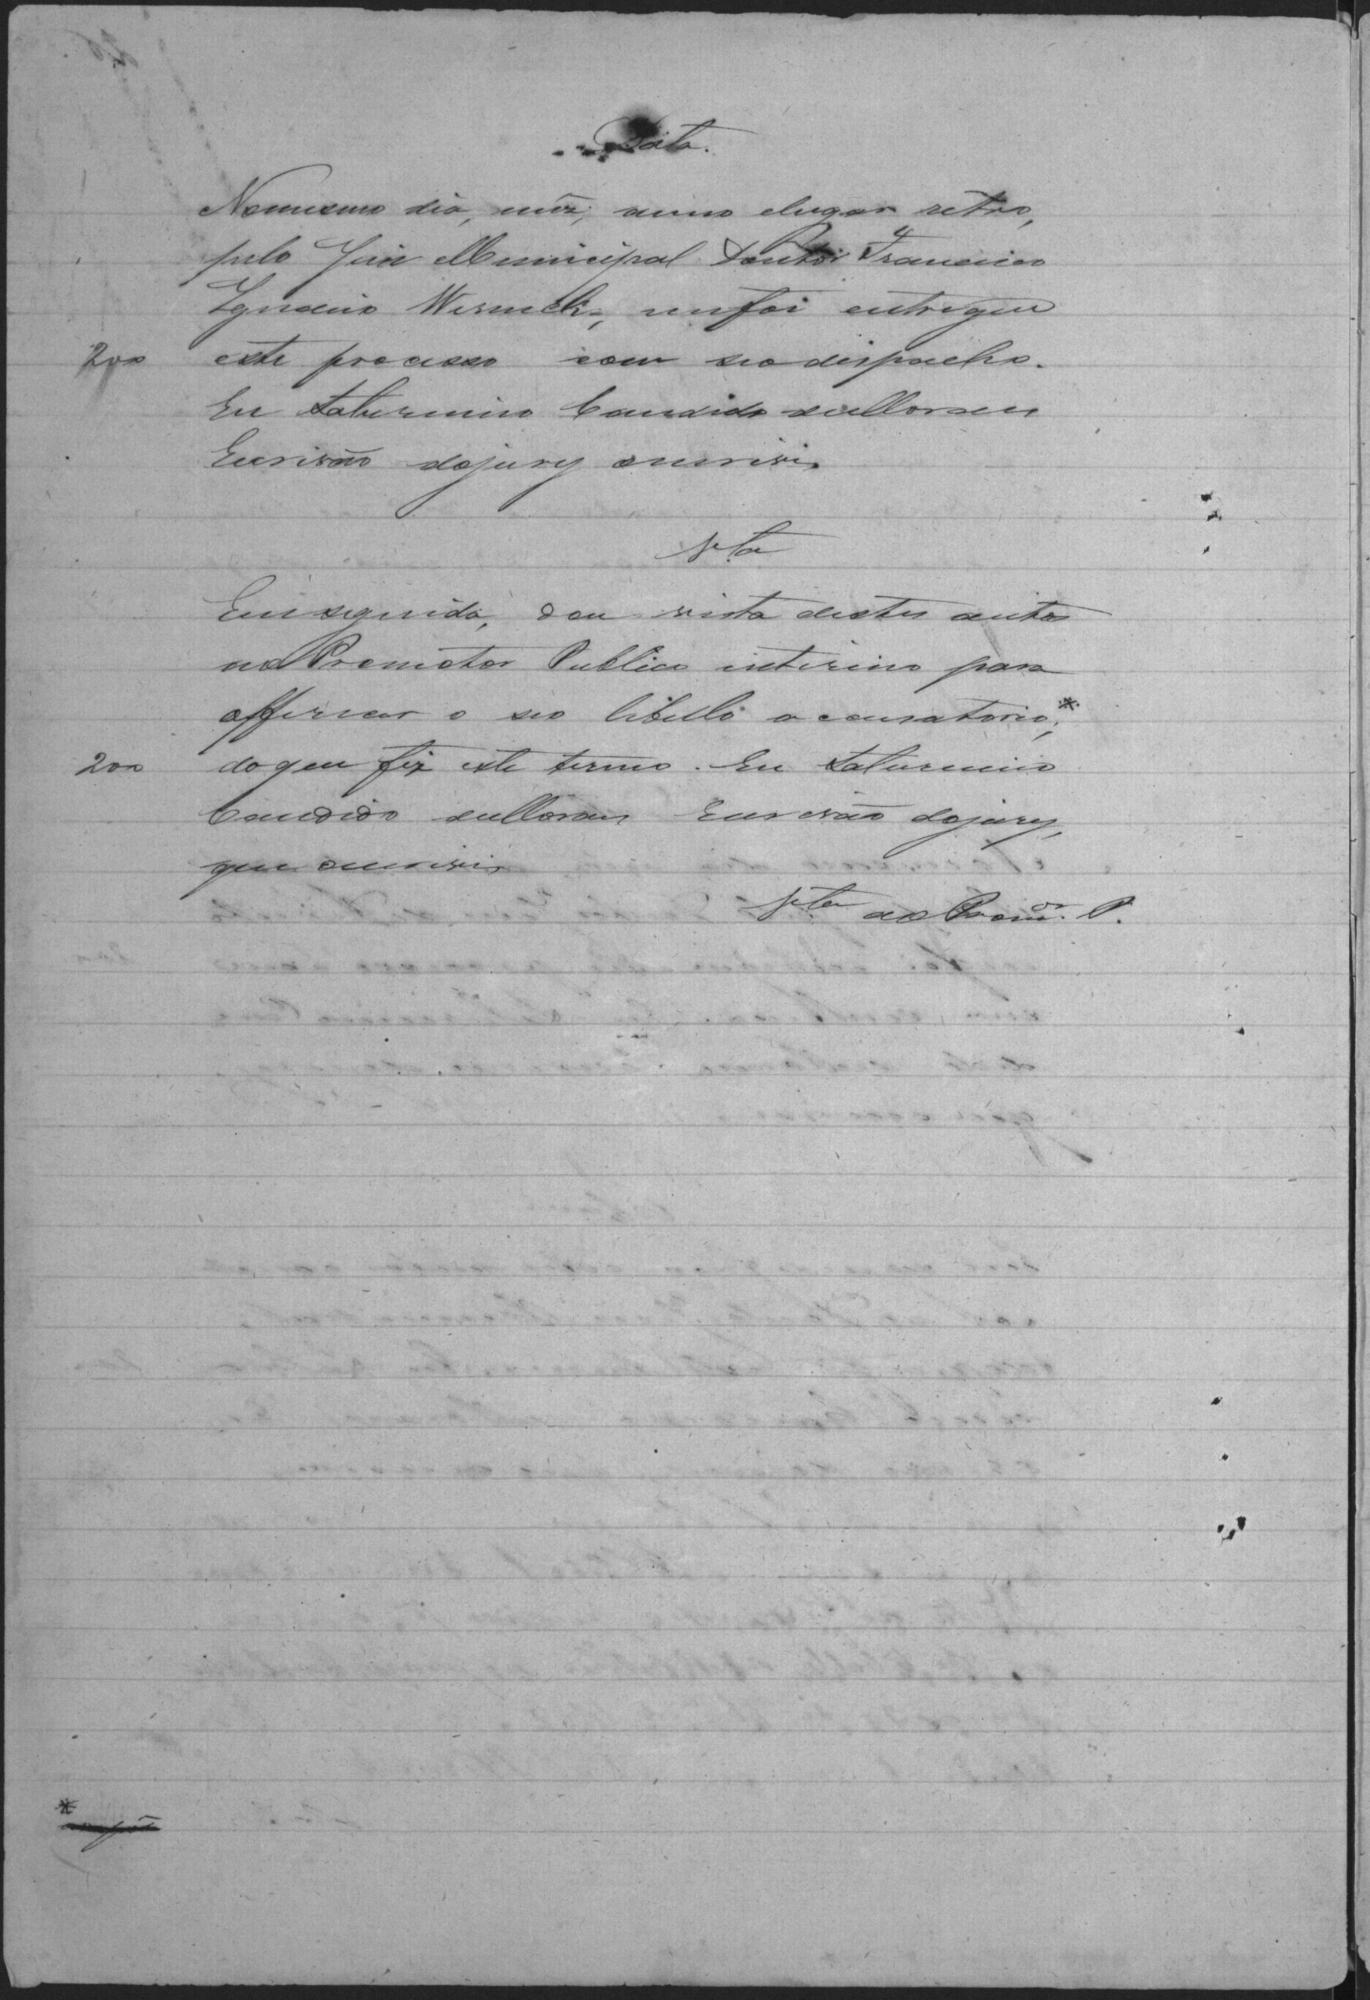 Data.
No mesmo dia, mez, anno e lugar retro,
pelo Juiz Municipal Doutor Francisco
Ignacio Werneck, me foi entregue
200 este processo com seo despacho.
Eu Saturnino Candido
Escrivão do jury o escrivi.
Vta
Em seguida, dou vista destes autos
ao Promotor Publico interino para
offerecer o seo libello accusatorio,*
200 do que fiz este termo. Eu Saturnino
Candido Escrivão do jury,
que o escrivi.
Vta ao Promor. P.
*